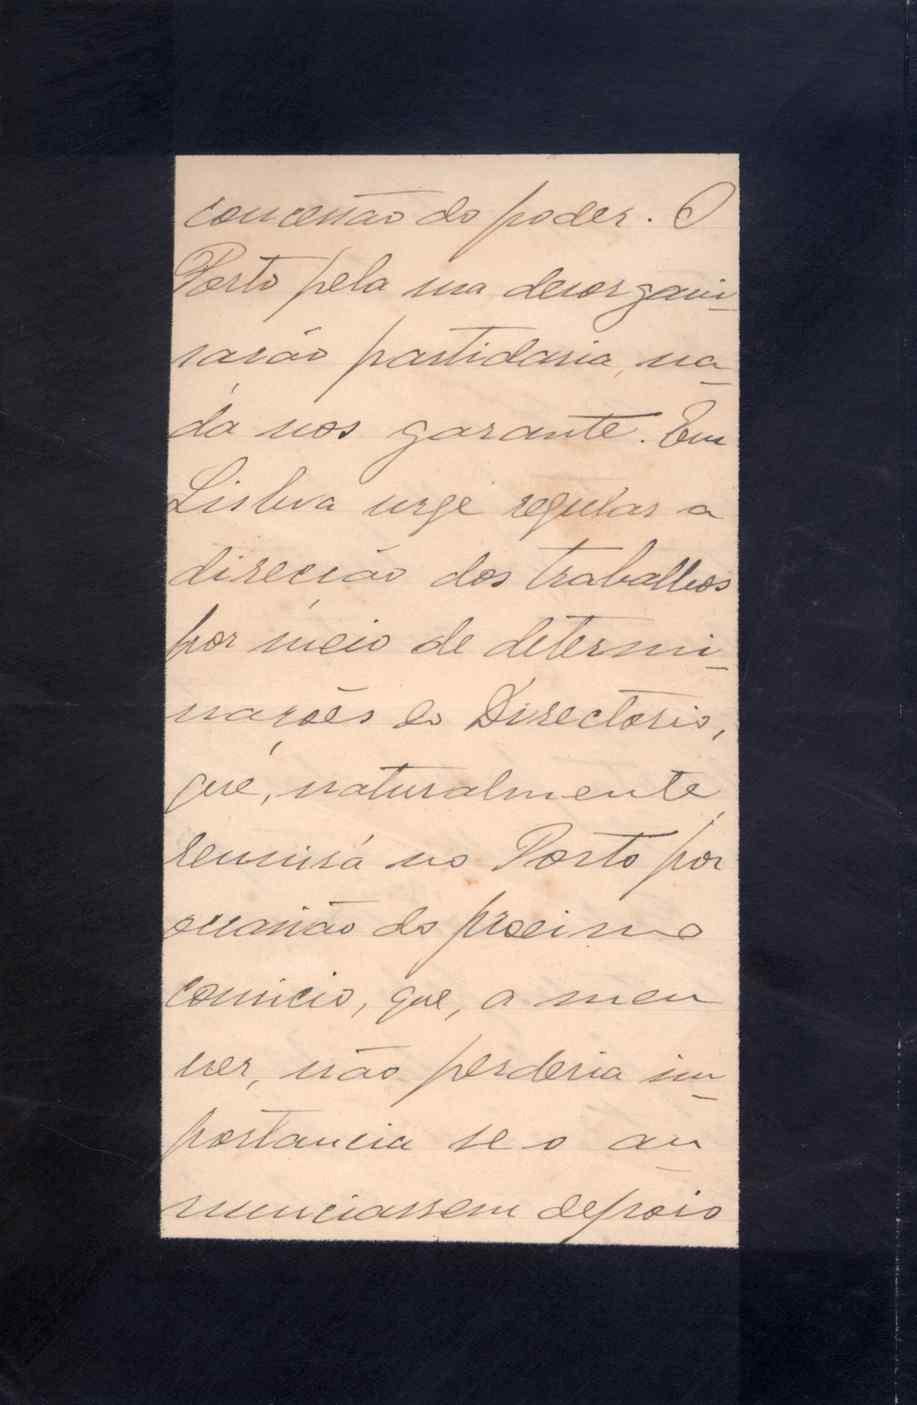 concessão do poder. O
Porto pela sua desorgani-
sação partidaria, na-
da nos garante. Em
Lisboa urge regular a
direcção dos trabalhos
por meio de determi-
nações do Directorio,
que, naturalmente,
reunirá no Porto por
occasião do proximo
comicio, que, a meu
ver, não perderia im-
portancia se o an-
nunciassem depois